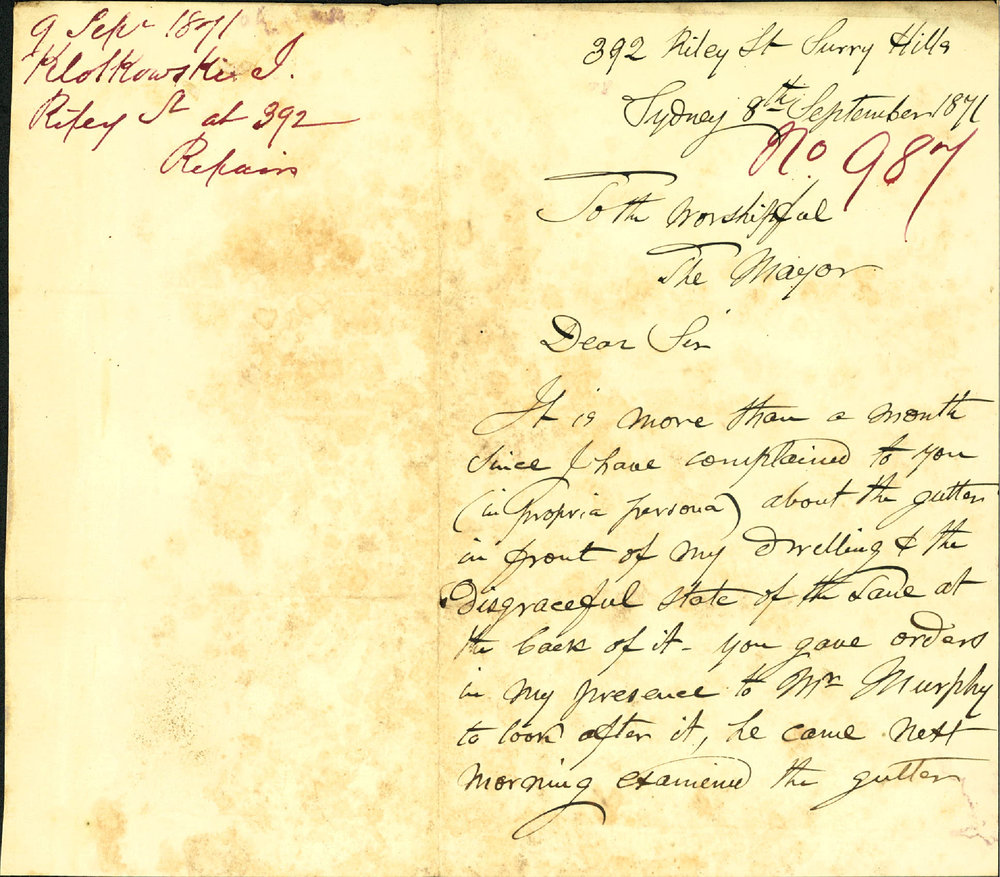 9 Sepr 1871
Klotkowski J.
Riley St at 392
Repairs
392 Riley St Surry Hills
Sydney 8th September 1871
No 987
To the Worshipful
The Mayor
Dear Sir
It is more than a month
since I have complained to you
(in Propria persona) about the gutter
in front of my Dwelling & the
Disgraceful state of the Lane at
the back of it - you gave orders
in my presence to Mr Murphy
to look after it, he came next
morning examined the gutter